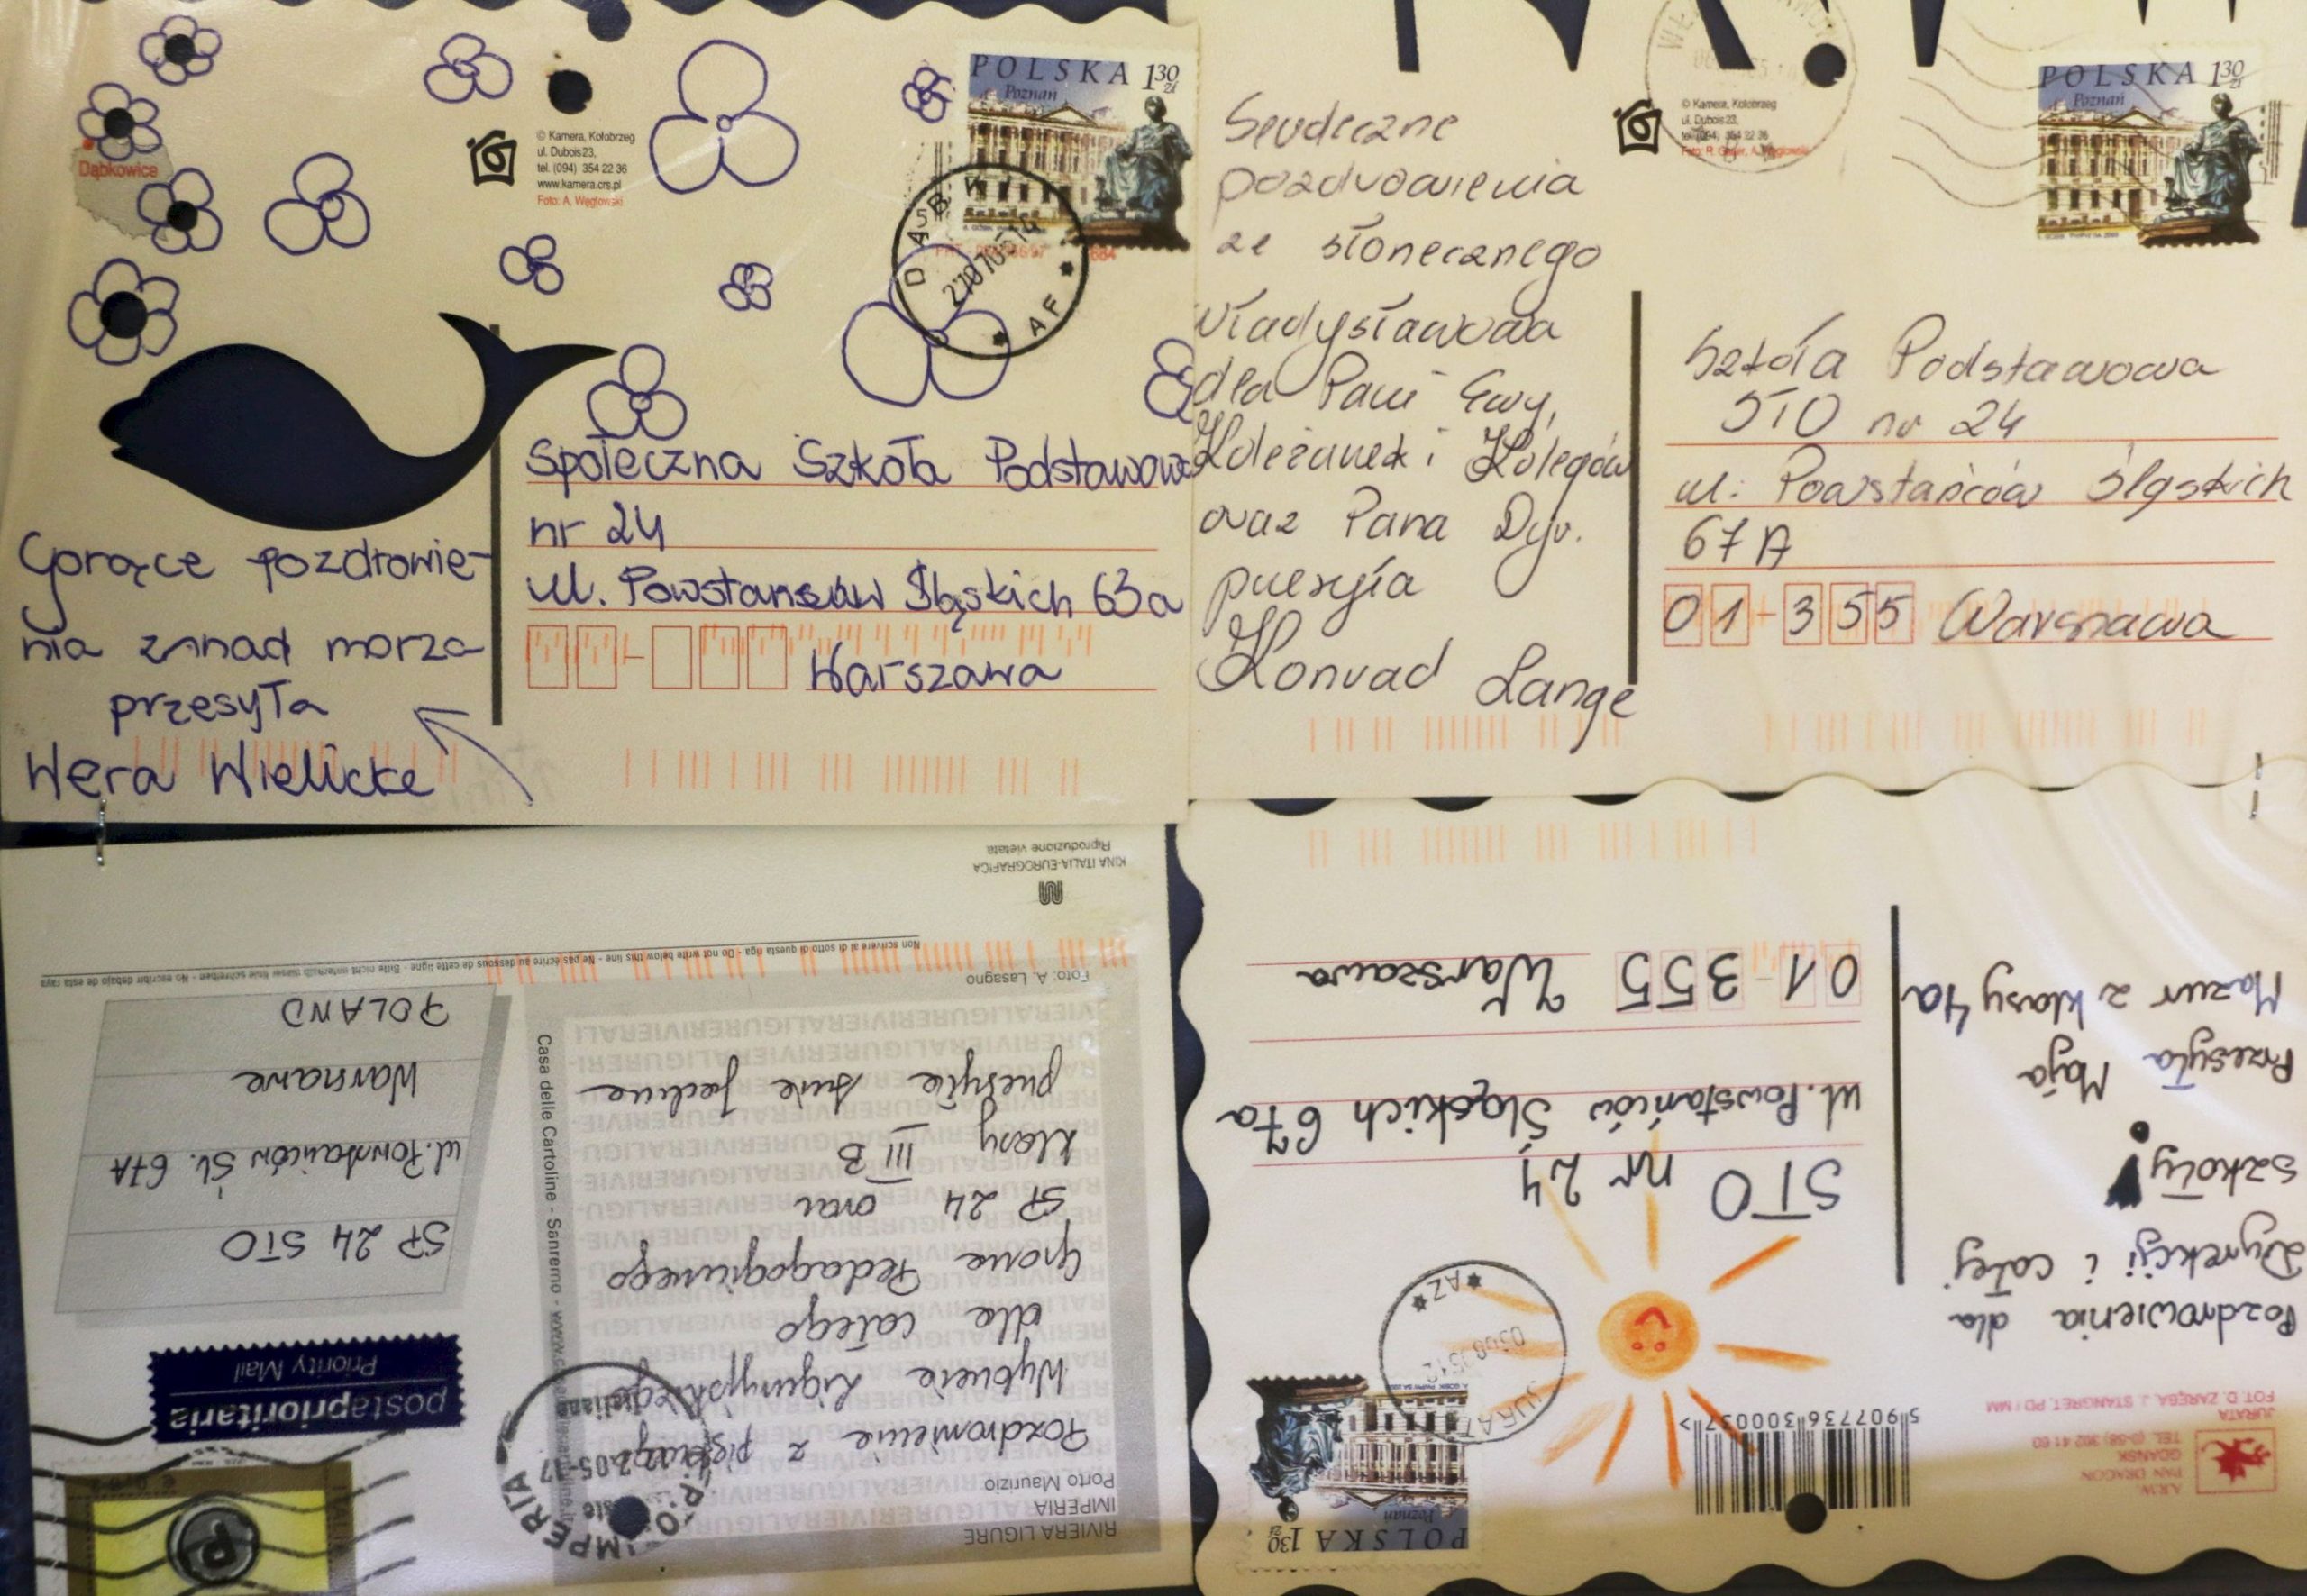 Dąbkowice
© Kamera, Kołobrzeg
ul. Dubois 23,
tel. (094) 354 22 36
www.kamera.crs.pl
Foto: A. Węglowski
POLSKA 130 zł
Poznań
27 07 05-14
AF
Gorące pozdrowie-
nia znad morza
przesyła
Wera Wielicke
Społeczna Szkoła Podstawowa
nr 24
ul. Powstanców Śląskich 63a
Warszawa
© Kamera, Kołobrzeg
ul. Dubois 23,
tel. (094) 354 22 36
POLSKA 130 zł
Poznań
Serdeczne
pozdrowienia
ze słonecznego
Władysławowa
dla Pani Ewy,
Koleżanek i Kolegów
oraz Pana Dyr.
przesyła
Konrad Lange
Szkoła Podstawowa
STO nr 24
ul. Powstańców Śląskich
67A
01-355 Warszawa
RIVIERA LIGURE
IMPERIA
Porto Maurizio
Pozdrowienie z pięknego
Wybrzeże Liguryjskiego
dla całego
Grona Pedagogicznego
SP 24 oraz
klasy III B
przesyła
Foto: A. Lasagno
Casa delle Cartoline - Sanremo
postaprioritaria
Priority Mail
IMPERIA
SP 24 STO
ul. Powstańców Śl. 67A
Warszawa
POLAND
Non scrivere al di sotto di questa riga - Do not write below this line - Ne pas écrire au dessous de cette ligne - Bitte nicht unterhalb dieser linie schreiben - No escribir debajo de esta raya
KINA ITALIA-EUROGRAFICA
Riproduzione vietata
A.R.W.
PAN DRAGON
GDAŃSK
TEL. (0-58) 302 41 60
JURATA
FOT. D. ZARĘBA, J. STANGRET, PD / MM
5 907736 300037 >
POLSKA 130 zł
Poznań
JURATA
AZ
Pozdrowienia dla
Dyrekcji i całej
szkoły!
Przesyła Maja
Mazur z klasy 4a
STO nr 24
ul. Powstańców Śląskich 67a
01-355 Warszawa